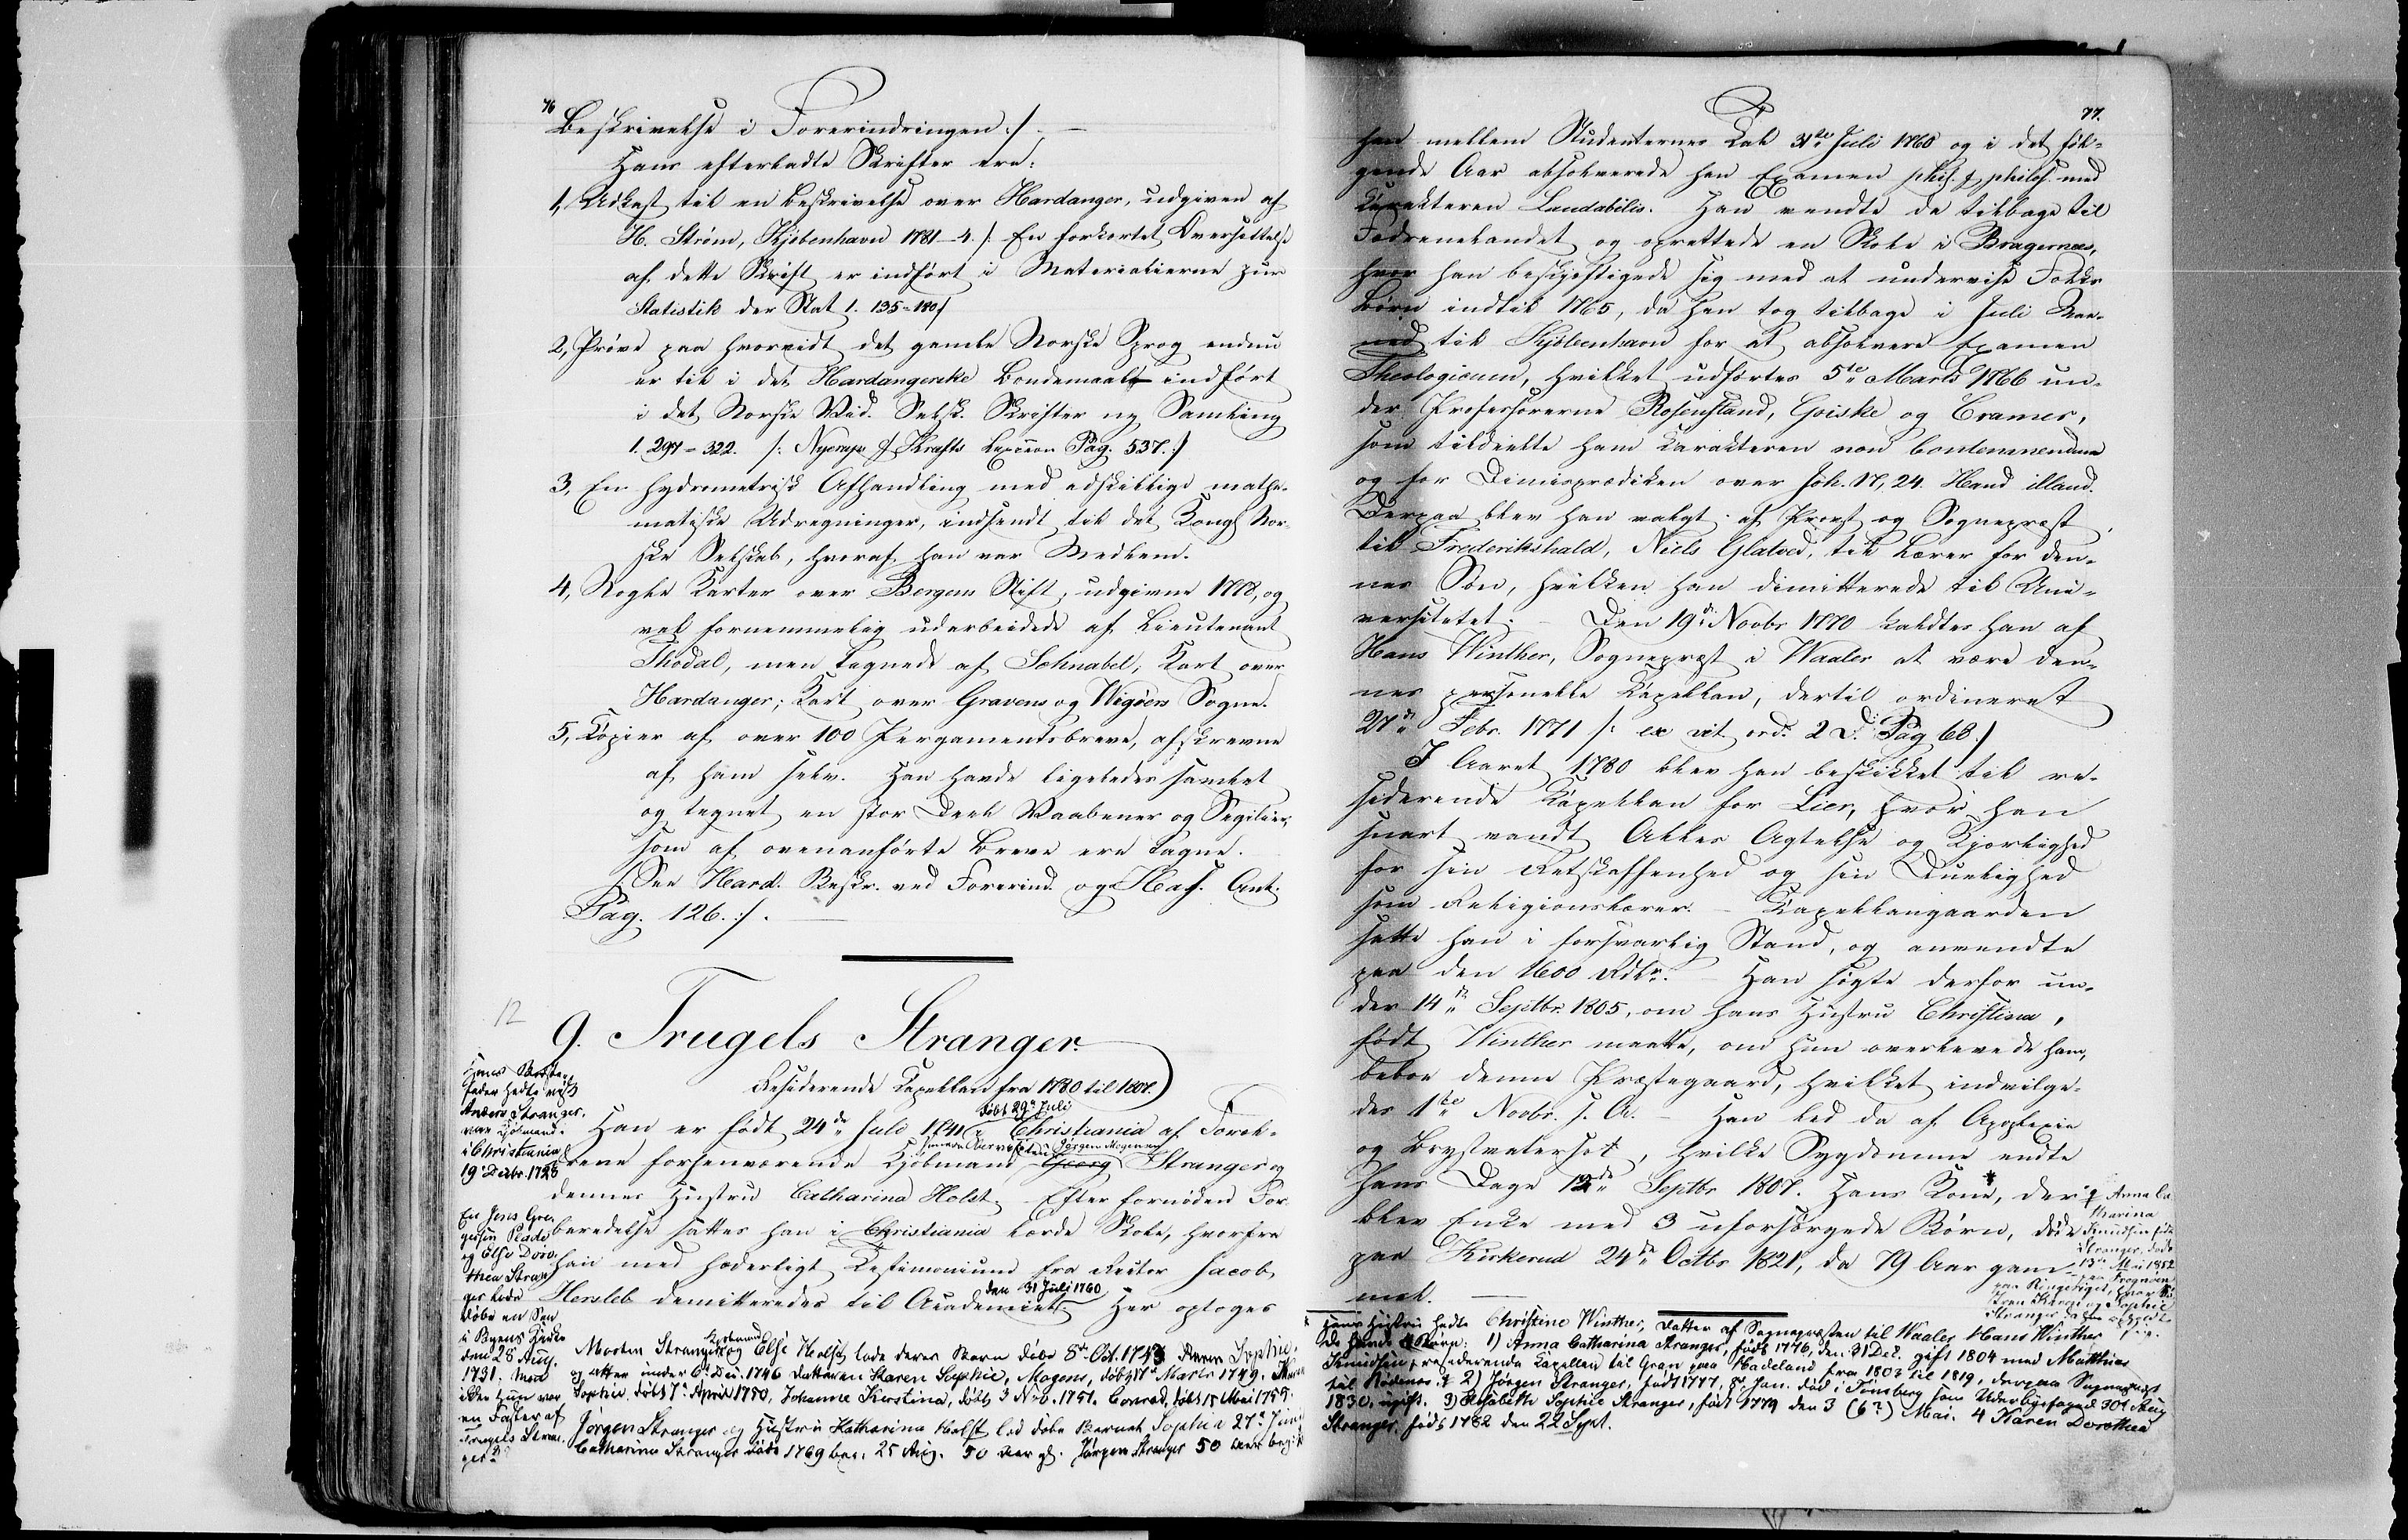 76
Beskrivelse i Forerindringen :/. —
Hans efterladte Skrifter ere:
1, Udkast til en Beskrivelse over Hardanger, udgiven af
H. Strøm, Kjøbenhavn 1781–4. /: En forkortet Oversættelse
af dette Skrift er indført i Materialierne zur
Statistik der Stat 1. 135=180/
2, Prøve paa hvorvidt det gamle Norske Sprog endnu
er til i det Hardangerske Bondemaal indført
i det Norske Vid. Selsk. Skrifter ny Samling
1. 297=322. /: Nyerups & Krafts Lexicon Pag. 537.:/
3, En hydrometrisk Afhandling med adskillige mathe-
matiske Udregninger, indsendt til det Kongl. Nor-
ske Selskab, hvoraf han var Medlem.
4, Nogle Karter over Bergens Stift, udgivne 1778, og
vel fornemmelig udarbeidede af Lieutenant
Thodal, men tegnede af Schnabel; Kart over
Hardanger; Kart over Gravens og Wigøers Sogne.
5, Copier af over 100 Pergamentsbreve, afskrevne
af ham selv. Han havde ligeledes samlet
og tegnet en stor Deel Vaabener og Segilier,
som af ovenanførte Breve ere tagne.
/: See Hard. Beskr. ved Forerind. og Ant.
Pag. 126. :/. —
12
9. Trugels Stranger.
Residerende Capellan fra 1780 til 1807.
Hans
fader hedte
Anders Stranger,
var Kjøbmand
i Christiania
19 Decbr. 1728
døbt 29 Juli
Han er født 24de Juli 1741 i Christiania af Foræl-
Jørgen Mogensen
drene forhenværende Kjøbmand Georg Stranger og
dennes Hustru Catharina Holst. Efter fornøden For-
beredelse sattes han i Christiania lærde Skole, hvorfra
han med hæderligt Testimonium fra Rector Jacob
den 31 Juli 1760
Hersleb demitteredes til Academiet. Her optoges
En Jens Gre-
gersen
og Else Doro-
thea Stran-
ger lode
døbe en Søn
i Byens Kirke
den 28 Aug.
1731.
ikke hun var
en Faster af
Trugels Stran-
ger?
Morten Stranger og Else Holst lode deres Barn døbe 8de Oct. 1743 Anne Sophie,
og atter under 6te Dec. 1746 Datteren Karen Sophie, Mogens, døbt 17de Marts 1749,
Sophie døbt 7de April 1750, Johanne Kirstina, døbt 3 Nov. 1751. Conrad, døbt 15 Mai 1759.
Jørgen Stranger og Hustru Katharina Holst lod døbe Barnet Sophia 27de Juni
Catharina Stranger døde 1769 beg. 25 Aug. 50 Aar gl. Jørgen Stranger 50 Aar beg.
77.
han mellem Studenternes Tal 31te Juli 1760 og i det føl-
gende Aar absolverede han Examen phil. & philos. med
Karakteren Laudabilis. Han vendte da tilbage til
Fædrenelandet og oprettede en Skole i Bragernæs,
hvor han beskjeftigede sig med at undervise Folks
Børn indtil 1765, da han tog tilbage i Juli Maa-
ned til Kjøbenhavn for at absolvere Examen
Theologicum, hvilket udførtes 5te Marts 1766 un-
der Professorerne Rosenstand, Goiske og Cramer,
som tildeelte ham Karakteren non contemnendus
og for Dimisprædiken over Joh. 17, 24. Haud illaud.
Derpaa blev han valgt af Provst og Sognepræst
til Frederikshald, Niels Glatved, til Lærer for den-
nes Søn, hvilken han dimitterede til Uni-
versitetet. – Den 19de Novbr 1770 kaldtes han af
Hans Winther, Sognepræst i Waaler at være den-
nes personelle Capellan, dertil ordineret
27de Febr. 1771 /: ex vit. ord. 2 D. Pag 68./
I Aaret 1780 blev han beskikket til re-
siderende Capellan for Lier, hvor han
snart vandt Alles Agtelse og Kjærlighed
for sin Retskaffenhed og sin Duelighed
som Religionslærer. – Capellangaarden
satte han i forsvarlig Stand, og anvendte
paa den 1600 Rdlr. – Han søgte derfor un-
der 14de Septbr. 1805, om hans Hustru Christina,
født Winther maatte, om hun overlevede ham,
beboe denne Præstegaard, hvilket indvilge-
des 1te Novbr. s. A. – Han led da af Apoplexie
og Brystvatersot, hvilke Sygdomme endte
hans Dage 12de Septbr 1807. Hans Kone*, der
blev Enke med 3 uforsørgede Børn, døde
paa Kirkerud 24de Octbr 1821, da 79 Aar gam-
mel.
Anna Ca-
tharina
Knudsen født
Stranger, døde
13de Mai 1852
paa Frognøen
paa Ringeriget, hvor
* Hans Hustru hedte Christine Winther, Datter af Sognepræsten til Waaler Hans Winther.
De havde Børn: 1) Anna Catharina Stranger, født 1776, den 31 Dec. gift 1804 med Matthias
Knudsen, residerende Capellan til Gran paa Hadeland fra 1803 til 1819, derpaa Sognepræst
til Rødenes. 2) Jørgen Stranger, født 1777, Jan. død i Tønsberg som Underbyfoged 30te Aug
1830, ugift. 3) Elisabeth Sophie Stranger, født 1779 den 3 (6?) Mai. 4 Karen Dorothea
Stranger, født 1782 den 22 Sept.